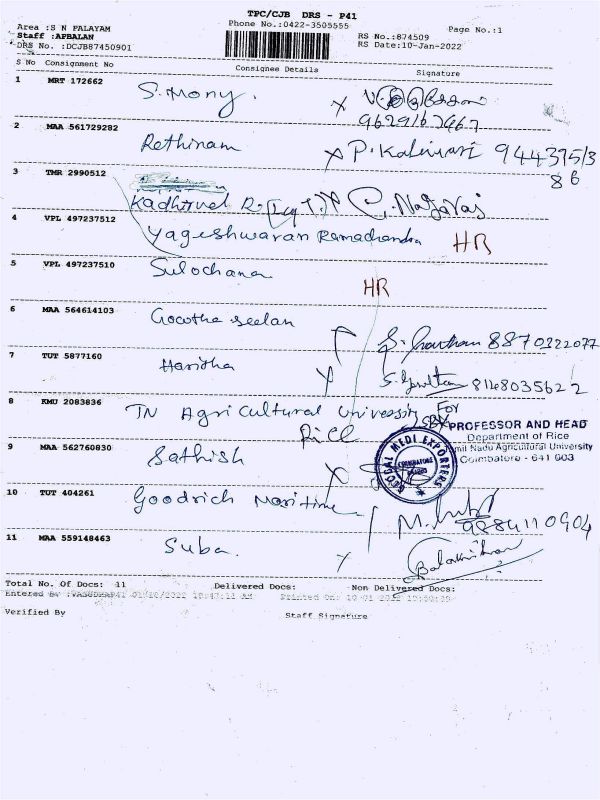 TPC/CJB DRS - P41
Area :S N PALAYAM
Phone No.:0422-3505555
Page No.:1
Staff :APBALAN
RS No.:874509
DRS No. :DCJB87450901
RS Date:10-Jan-2022
S No Consignment No Consignee Details Signature
1 MRT 172662 S. Mony.
2 MAA 561729282 Rethinam P. Kaleivani 944395/3
86
3 TMR 2990512
Kadhirvel R. C. Nagaraj
4 VPL 497237512 Yageshwaran Ramachandra HR
5 VPL 497237510 Sulochana
HR
6 MAA 564614103 Gowtha seelan
S. Gowtham 8870322077
7 TUT 5877160 Haritha
8 KMU 2083836 TN Agricultural University For
Rice
PROFESSOR AND HEAD
Department of Rice
Tamil Nadu Agricultural University
Coimbatore - 641 003
9 MAA 562760830 Sathish
MEDI EXPORTERS
COIMBATORE
10 TUT 404261 Goodrich Maritime
9884110904
11 MAA 559148463 Suba.
Balakrishnan
Total No. Of Docs: 11 Delivered Docs: Non Delivered Docs:
Verified By Staff Signature